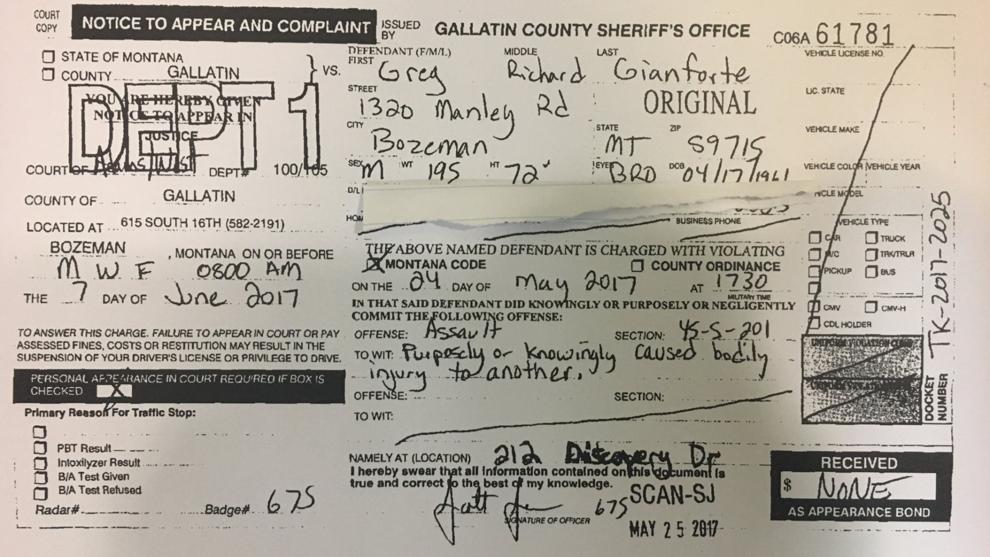 COURT COPY
NOTICE TO APPEAR AND COMPLAINT
ISSUED BY
GALLATIN COUNTY SHERIFF'S OFFICE
C06A 61781
STATE OF MONTANA
COUNTY GALLATIN
} VS.
YOU ARE HEREBY GIVEN
NOTICE TO APPEAR IN
DEPT 1
JUSTICE
COURT OF DEPT# 100/105
COUNTY OF GALLATIN
LOCATED AT 615 SOUTH 16TH (582-2191)
BOZEMAN , MONTANA ON OR BEFORE
M W F 0800 AM
THE 7 DAY OF June 2017
TO ANSWER THIS CHARGE. FAILURE TO APPEAR IN COURT OR PAY
ASSESSED FINES, COSTS OR RESTITUTION MAY RESULT IN THE
SUSPENSION OF YOUR DRIVER'S LICENSE OR PRIVILEGE TO DRIVE.
PERSONAL APPEARANCE IN COURT REQUIRED IF BOX IS
CHECKED X
Primary Reason For Traffic Stop:
PBT Result
Intoxilyzer Result
B/A Test Given
B/A Test Refused
Radar# Badge# 675
DEFENDANT (F/M/L)
FIRST MIDDLE LAST
Greg Richard Gianforte
STREET
1320 Manley Rd
ORIGINAL
CITY STATE ZIP
Bozeman MT 59715
SEX M WT 195 HT 72" EYE BRO DOB 04/17/1961
D/L
HOM
BUSINESS PHONE
THE ABOVE NAMED DEFENDANT IS CHARGED WITH VIOLATING
X MONTANA CODE COUNTY ORDINANCE
ON THE 24 DAY OF May 2017 AT 1730
MILITARY TIME
IN THAT SAID DEFENDANT DID KNOWINGLY OR PURPOSELY OR NEGLIGENTLY
COMMIT THE FOLLOWING OFFENSE:
OFFENSE: Assault SECTION: 45-5-201
TO WIT: Purposely or knowingly caused bodily
injury to another.
OFFENSE: SECTION:
TO WIT:
NAMELY AT (LOCATION) 212 Discovery Dr
I hereby swear that all information contained on this document is
true and correct to the best of my knowledge.
675
SIGNATURE OF OFFICER
SCAN-SJ
MAY 25 2017
VEHICLE LICENSE NO.
LIC. STATE
VEHICLE MAKE
VEHICLE COLOR VEHICLE YEAR
HICLE MODEL
VEHICLE TYPE
CAR TRUCK
M/C TRK/TRLR
PICKUP BUS
CMV CMV-H
CDL HOLDER
UNIFORM VIOLATION CODE
DOCKET NUMBER
TK-2017-2025
RECEIVED
$ NONE
AS APPEARANCE BOND